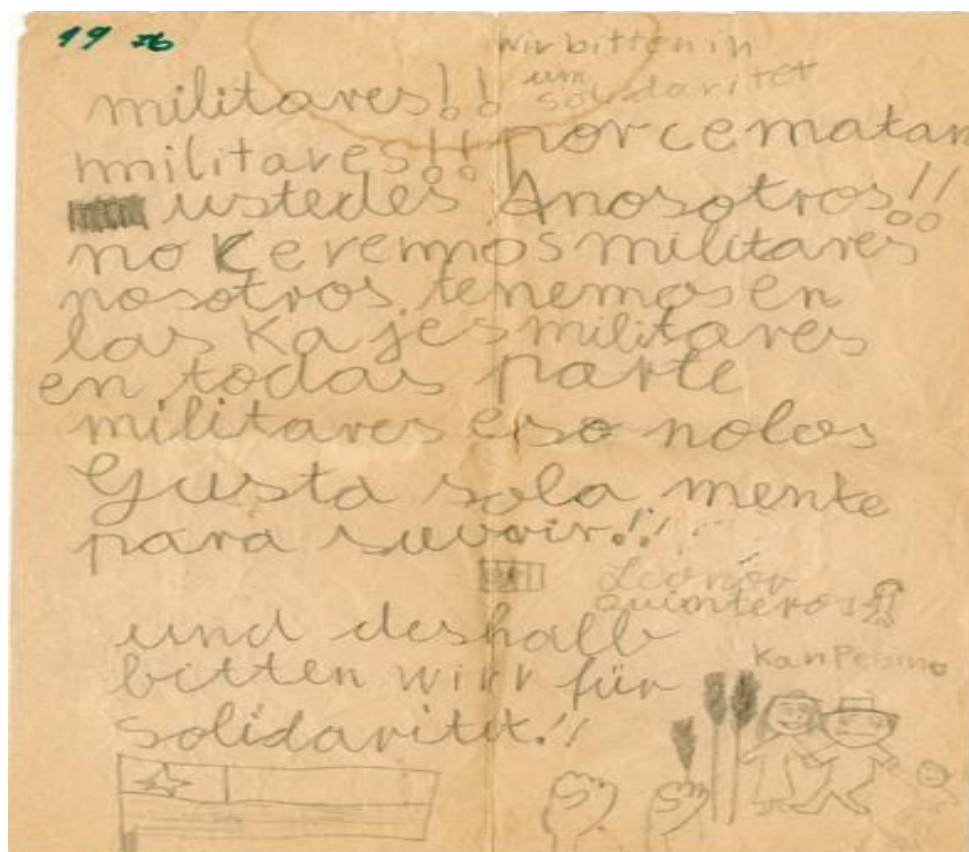 19 76
wir bitten in
um
solidaritet
militares!!
militares!! porce matan
ustedes Anosotros!!
no Keremos militares
nosotros tenemos en
las Kajes militares
en todas parte
militares eso nolos
Gusta sola mente
para suvrir!!
Leonor
quinteros
und deshalb
bitten wirr für
solidaritet!!
KanPesino